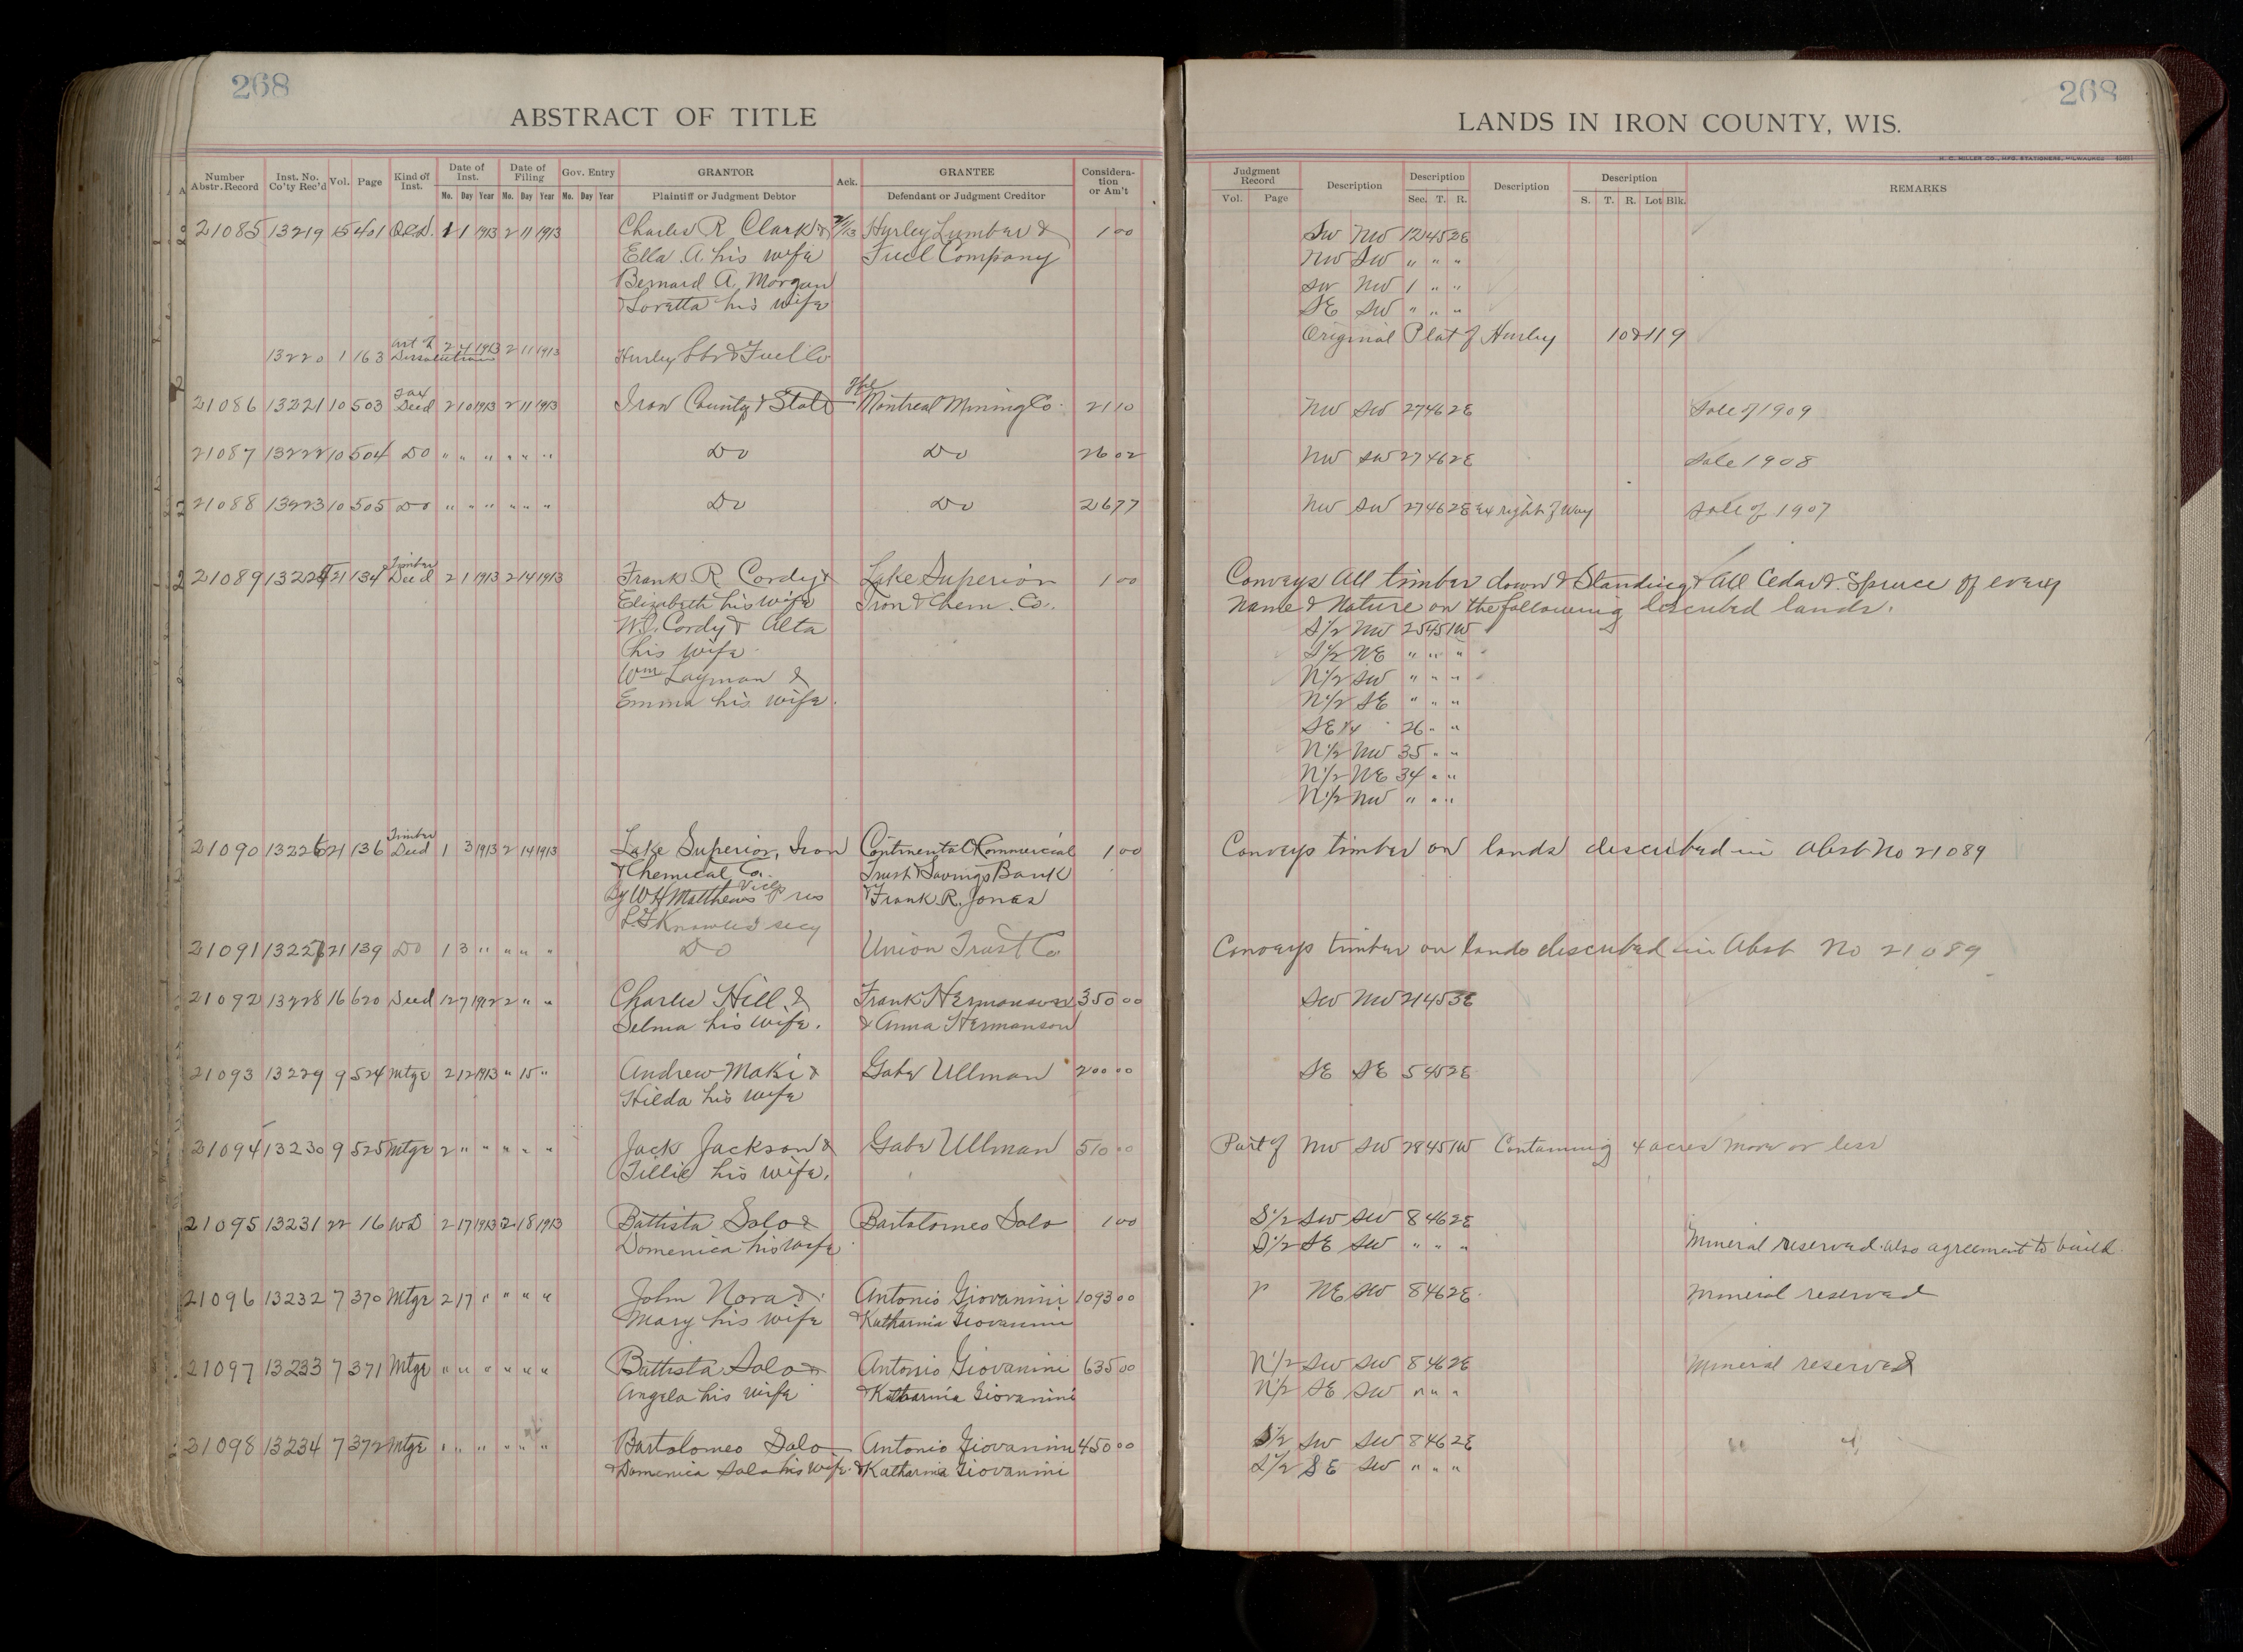 268
ABSTRACT OF TITLE
Number Abstr. Record Inst. No. Co'ty Rec'd Vol. Page Kind of Inst. Date of Inst. Date of Filing Gov. Entry GRANTOR Ack. GRANTEE Considera-tion or Am't
Mo. Day Year Mo. Day Year Mo. Day Year Plaintiff or Judgment Debtor Defendant or Judgment Creditor
21085 13219 15 401 1 1913 2 11 1913 Charles R. Clark & Hurley Lumber & 1 00
Ella A. his wife Fuel Company
Bernard A. Morgan
& Loretta his wife
13220 1 163 Dissolution 2 4 1913 2 11 1913 Hurley Lbr & Fuel Co
21086 13221 10 503 Tax Deed 2 10 1913 2 11 1913 Iron County & State Montreal Mining Co. 21 10
21087 13222 10 504 Do " " " " " " Do Do 26 02
21088 13223 10 505 Do " " " " " " Do Do 26 77
21089 1322 21 134 Timber Deed 2 1 1913 2 14 1913 Frank R. Cordy & Lake Superior 1 00
Elizabeth his wife Iron & Chem. Co.
Cordy & Alta
his wife
Wm Layman &
Emma his wife.
21090 13226 21 136 Timber Deed 1 3 1913 2 14 1913 Lake Superior, Iron Continental & Commercial 1 00
& Chemical Co. Trust & Savings Bank
By W H Matthews Vice Pres & Frank R. Jones
Knowles secy
21091 13227 21 139 Do 1 3 " " " " Do Union Trust Co
21092 13228 16 620 Deed 12 7 1912 2 " " Charles Hill & Frank Hermanson 350 00
Selma his wife. & Anna Hermanson
21093 13229 9 524 Mtge 2 12 1913 " 15 " Andrew Maki & Gabe Ullman 200 00
Hilda his wife
21094 13230 9 525 Mtge 2 " " " " " Jack Jackson & Gabe Ullman 510 00
Tillie his wife.
21095 13231 22 16 WD 2 17 1913 2 18 1913 Battista Salo & Bartolomeo Salo 1 00
Domenica his wife
21096 13232 7 370 Mtge 2 17 " " " " John Nora & Antonio Giovanini 1093 00
Mary his wife & Katharina Giovanini
21097 13233 7 371 Mtge " " " " " " Battista Salo & Antonio Giovanini 635 00
Angela his wife & Katharina Giovanini
21098 13234 7 372 Mtge " " " " " " Bartolomeo Salo Antonio Giovanini 450 00
& Domenica Salo his wife. & Katharina Giovanini
268
LANDS IN IRON COUNTY, WIS.
H. C. MILLER CO., MFG. STATIONERS, MILWAUKEE
Judgment Record Description Description Description Description REMARKS
Vol. Page Sec. T. R. S. T. R. Lot Blk.
SW NW 12 45 2E
NW SW " " "
SW NW 1 " "
SE SW " " "
Original Plat of Hurley 10 & 11 9
NW SW 27 46 2E Sale of 1909
NW SW 27 46 2E Sale 1908
NW SW 27 46 2E Ex right of way Sale of 1907
Conveys All timber down & Standing & All Cedar & Spruce of every
name & Nature on the following described lands.
S1/2 NW 25 45 1W
S1/2 NE " " "
N1/2 SW " " "
N1/2 SE " " "
SE 1/4 26 " "
N1/2 NW 35 " "
N1/2 NE 34 " "
N1/2 NW " " "
Conveys timber on lands described in Abst No 21089
Conveys timber on lands described in Abst No 21089
SW NW 21 45 3E
SE SE 5 45 2E
Part of NW SW 28 45 1W Containing 4 acres more or less
S1/2 SW SW 8 46 2E
S1/2 SE SW " " " Mineral reserved also agreement to build
NE SW 8 46 2E Mineral reserved
N1/2 SW SW 8 46 2E Mineral reserved
N1/2 SE SW " " "
S1/2 SW SW 8 46 2E " "
S1/2 SE SW " " "